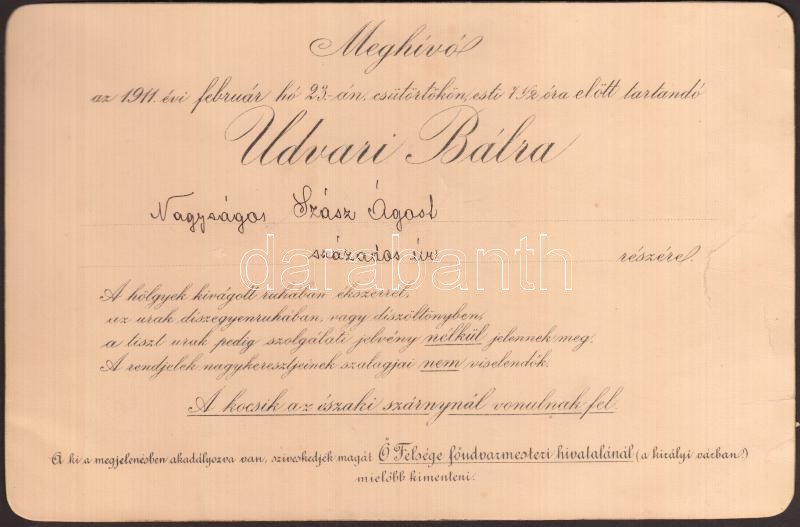 Meghívó
az 1911. évi február hó 23.-án, csütörtökön, esti 7 1/2 óra előtt tartandó
Udvari Bálra
Nagyságos Szász Ágost
százados úr részére.
darabanth
A hölgyek kivágott ruhában ékszerrel,
az urak diszegyenruhában, vagy diszöltönyben,
a tiszt urak pedig szolgálati jelvény nélkül jelennek meg.
A rendjelek nagykeresztjeinek szalagjai nem viselendők.
A kocsik az északi szárnynál vonulnak fel.
A ki a megjelenésben akadályozva van, sziveskedjék magát Ő Felsége főudvarmesteri hivatalánál (a királyi várban)
mielőbb kimenteni.